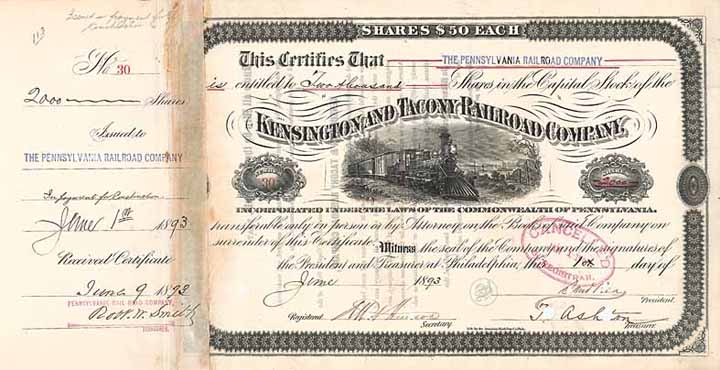 113
Issued in payment for
Construction
No 30
2000 Shares
Issued to
THE PENNSYLVANIA RAILROAD COMPANY
In payment for Construction
June 1st 1893
Received Certificate
June 9 1893
PENNSYLVANIA RAIL ROAD COMPANY,
Robt. W. Smith
TREASURER.
SHARES $50 EACH
This Certifies That THE PENNSYLVANIA RAILROAD COMPANY
is entitled to Two thousand Shares in the Capital Stock of the
KENSINGTON AND TACONY RAILROAD COMPANY,
30
2000
INCORPORATED UNDER THE LAWS OF THE COMMONWEALTH OF PENNSYLVANIA.
transferable only in person or by Attorney, on the Books of the Company on
surrender of this Certificate. Witness the seal of the Company and the signatures of
the President and Treasurer at Philadelphia, this 1st day of
June 1893
CANCELLED
REGISTRAR.
President
Registered
Secretary
T. Ashton
Treasurer